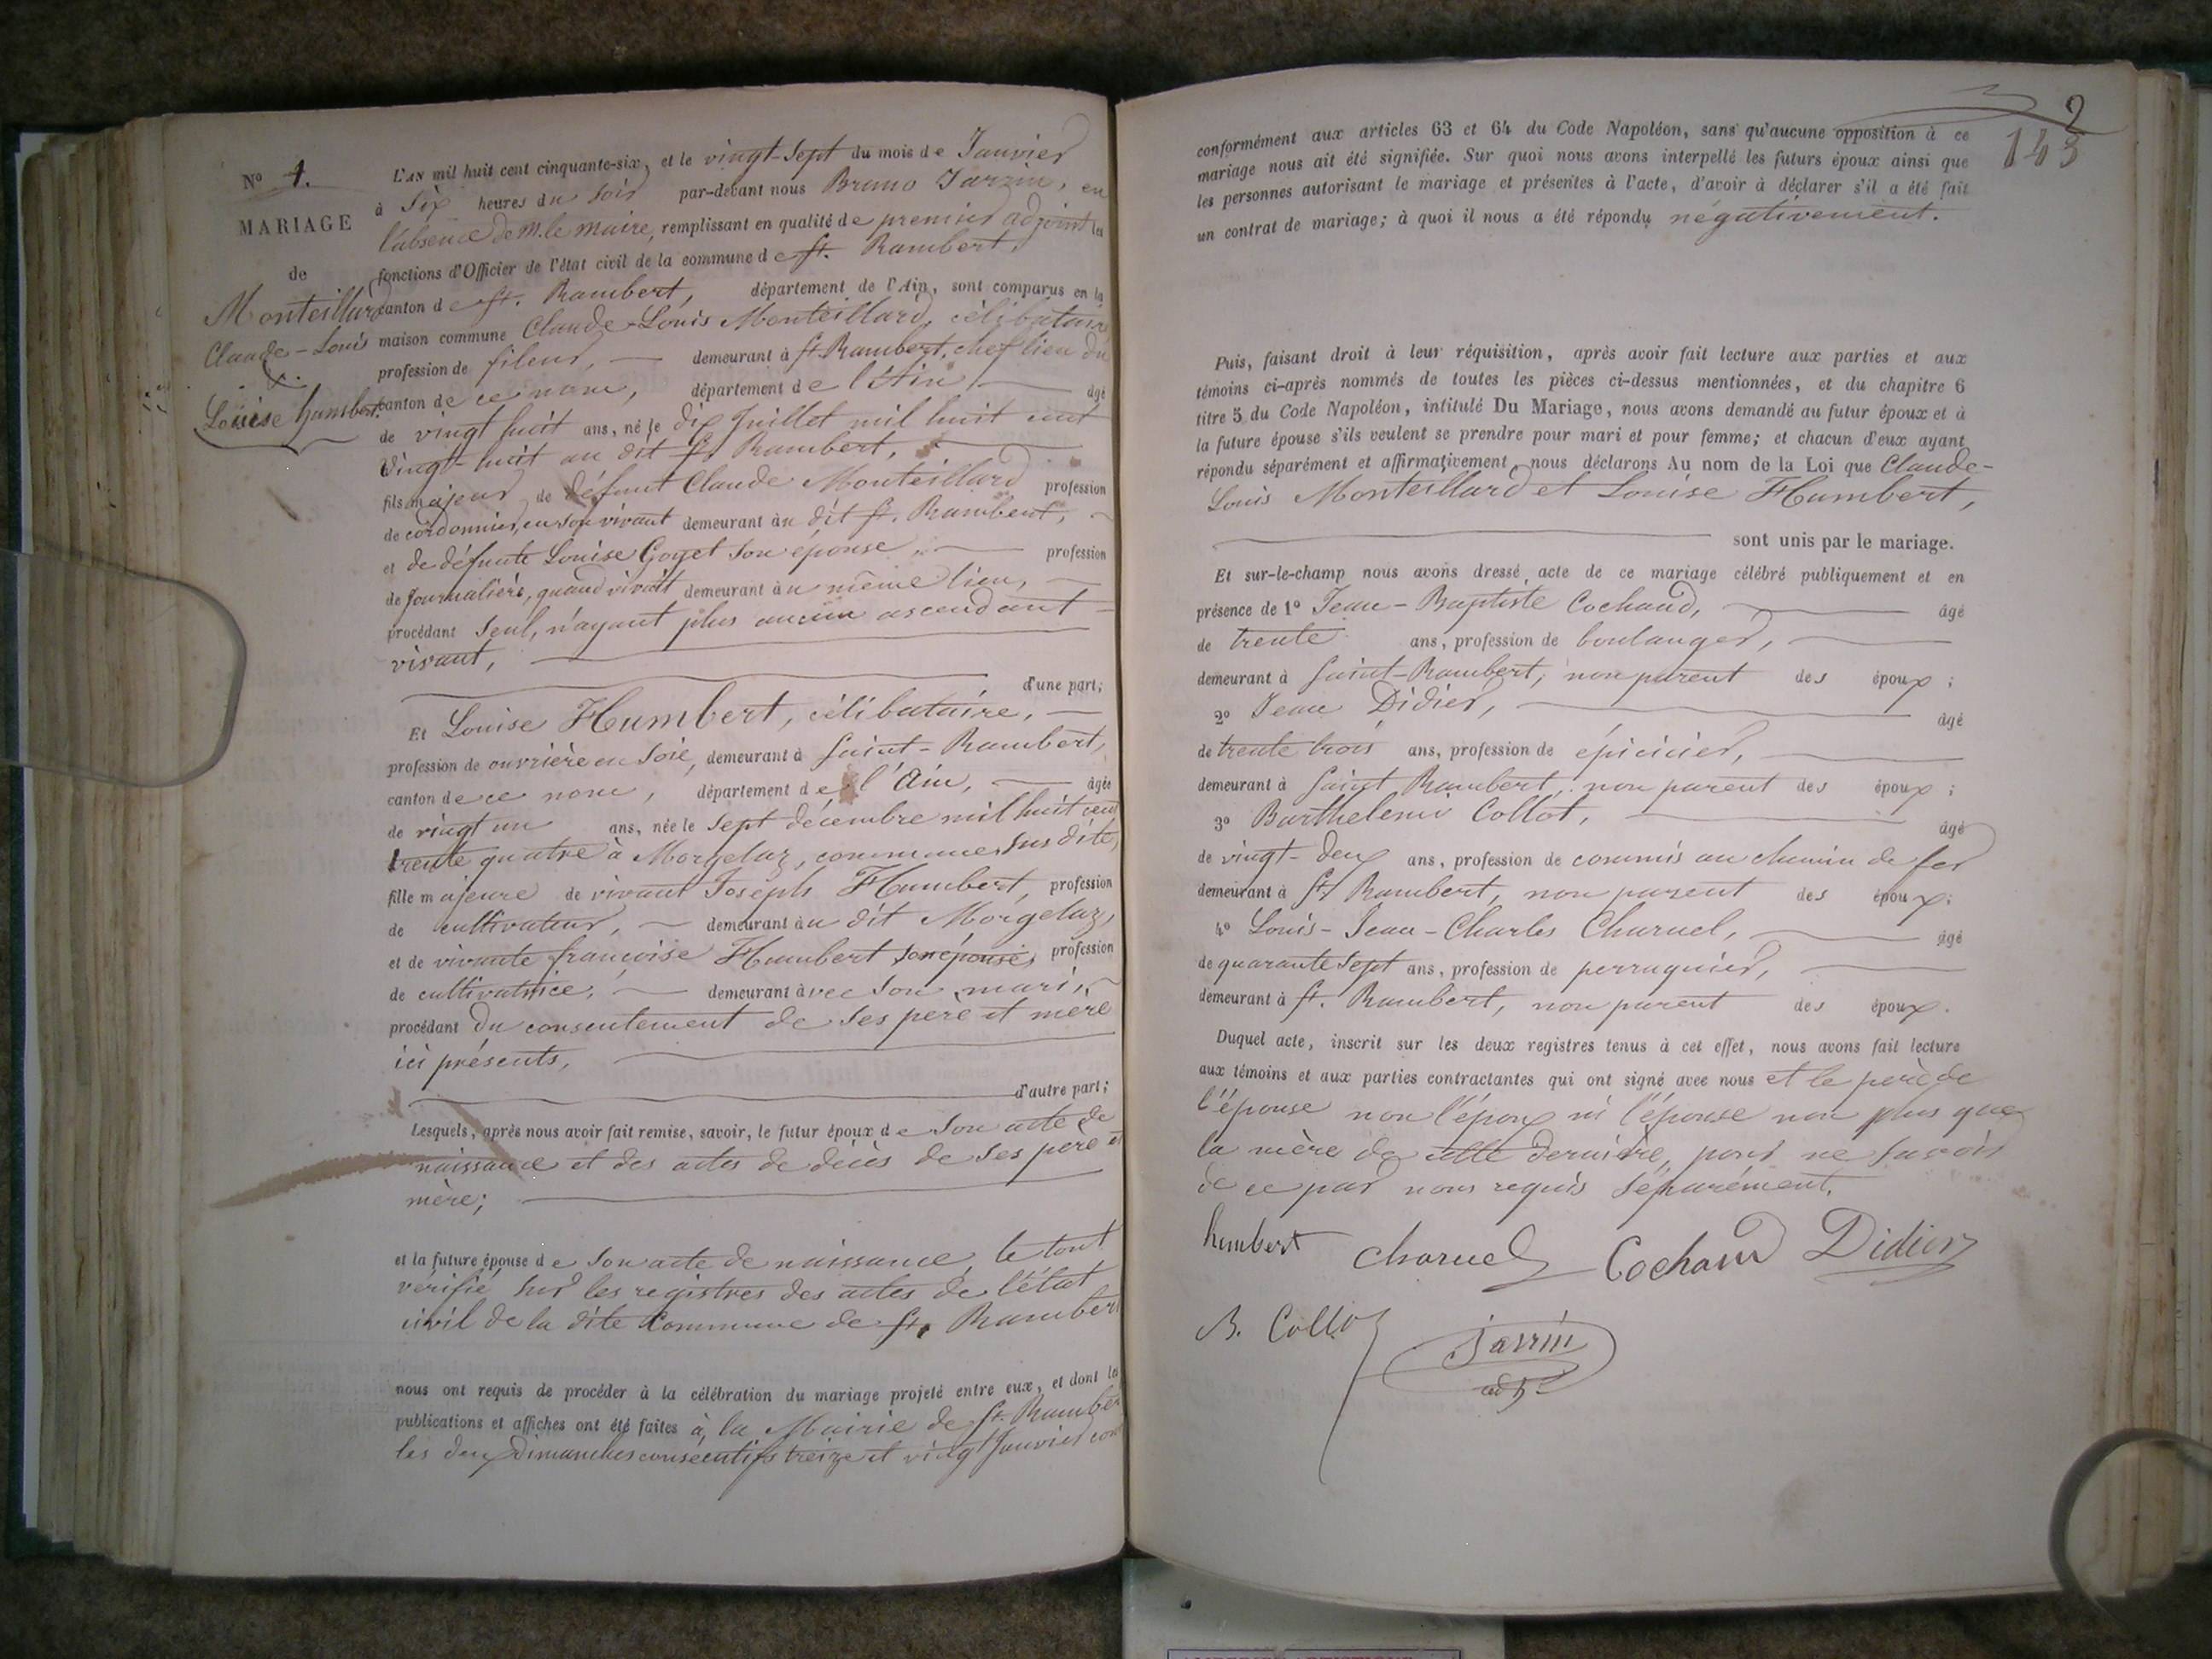 N° 1.
MARIAGE
de
Monteillard
Claude-Louis
&
Louise humbert.
L'AN mil huit cent cinquante-six, et le vingt-sept du mois de Janvier
à Six heures du soir par-devant nous Bruno Jarrin, en
l'absence de M. le Maire, remplissant en qualité de premier adjoint les
fonctions d'Officier de l'état civil de la commune de St. Rambert,
canton de St. Rambert, département de l'Ain, sont comparus en la
maison commune Claude-Louis Monteillard, célibataire
profession de fileur, demeurant à St Rambert, chef lieu du
canton de ce nom, département de l'Ain, âgé
de vingt huit ans, né le dix Juillet mil huit cent
vingt-huit au dit St. Rambert,
fils majeur de défunt Claude Monteillard profession
de cordonnier, en son vivant demeurant au dit St. Rambert,
et de défunte Louise Goyet son épouse, profession
de journalière, quand vivait demeurant au même lieu,
procédant Seul, n'ayant plus aucun ascendant
vivant,
d'une part;
Et Louise Humbert, célibataire,
profession de ouvrière en Soie, demeurant à Saint-Rambert,
canton de ce nom, département de l'Ain, âgée
de vingt un ans, née le sept décembre mil huit cent
trente quatre à Morgelaz, commune sus dite,
fille majeure de vivant Joseph Humbert, profession
de cultivateur, demeurant au dit Morgelaz,
et de vivante françoise Humbert son épouse, profession
de cultivatrice, demeurant avec son mari,
procédant du consentement de ses père et mère
ici présents,
d'autre part;
Lesquels, après nous avoir fait remise, savoir, le futur époux de son acte de
naissance et des actes de décès de ses père et
mère;
et la future épouse de son acte de naissance, le tout
vérifié sur les registres des actes de l'état
civil de la dite Commune de St. Rambert
nous ont requis de procéder à la célébration du mariage projeté entre eux, et dont les
publications et affiches ont été faites à la Mairie de St. Rambert
les deux Dimanches consécutifs treize et vingt Janvier
2
143
conformément aux articles 63 et 64 du Code Napoléon, sans qu'aucune opposition à ce
mariage nous ait été signifiée. Sur quoi nous avons interpellé les futurs époux ainsi que
les personnes autorisant le mariage et présentes à l'acte, d'avoir à déclarer s'il a été fait
un contrat de mariage; à quoi il nous a été répondu négativement.
Puis, faisant droit à leur réquisition, après avoir fait lecture aux parties et aux
témoins ci-après nommés de toutes les pièces ci-dessus mentionnées, et du chapitre 6
titre 5 du Code Napoléon, intitulé Du Mariage, nous avons demandé au futur époux et à
la future épouse s'ils veulent se prendre pour mari et pour femme; et chacun d'eux ayant
répondu séparément et affirmativement nous déclarons Au nom de la Loi que Claude-
Louis Monteillard et Louise Humbert,
sont unis par le mariage.
Et sur-le-champ nous avons dressé acte de ce mariage célébré publiquement et en
présence de 1° Jean-Baptiste Cochaud, âgé
de trente ans, profession de boulanger,
demeurant à Saint-Rambert, non parent des époux;
2° Jean Didier, âgé
de trente trois ans, profession de épicicier,
demeurant à Saint Rambert, non parent des époux;
3° Barthelemi Collot, âgé
de vingt-deux ans, profession de commis au chemin de fer
demeurant à St Rambert, non parent des époux;
4° Louis-Jean-Charles Charuel, âgé
de quarante sept ans, profession de perruquier,
demeurant à St. Rambert, non parent des époux.
Duquel acte, inscrit sur les deux registres tenus à cet effet, nous avons fait lecture
aux témoins et aux parties contractantes qui ont signé avec nous et le père de
l'épouse non l'époux ni l'épouse non plus que
la mère de cette dernière, pour ne savoir
de ce par nous requis séparément.
humbert charuel Cochaud Didier
B. Collot
Jarrin
adj.